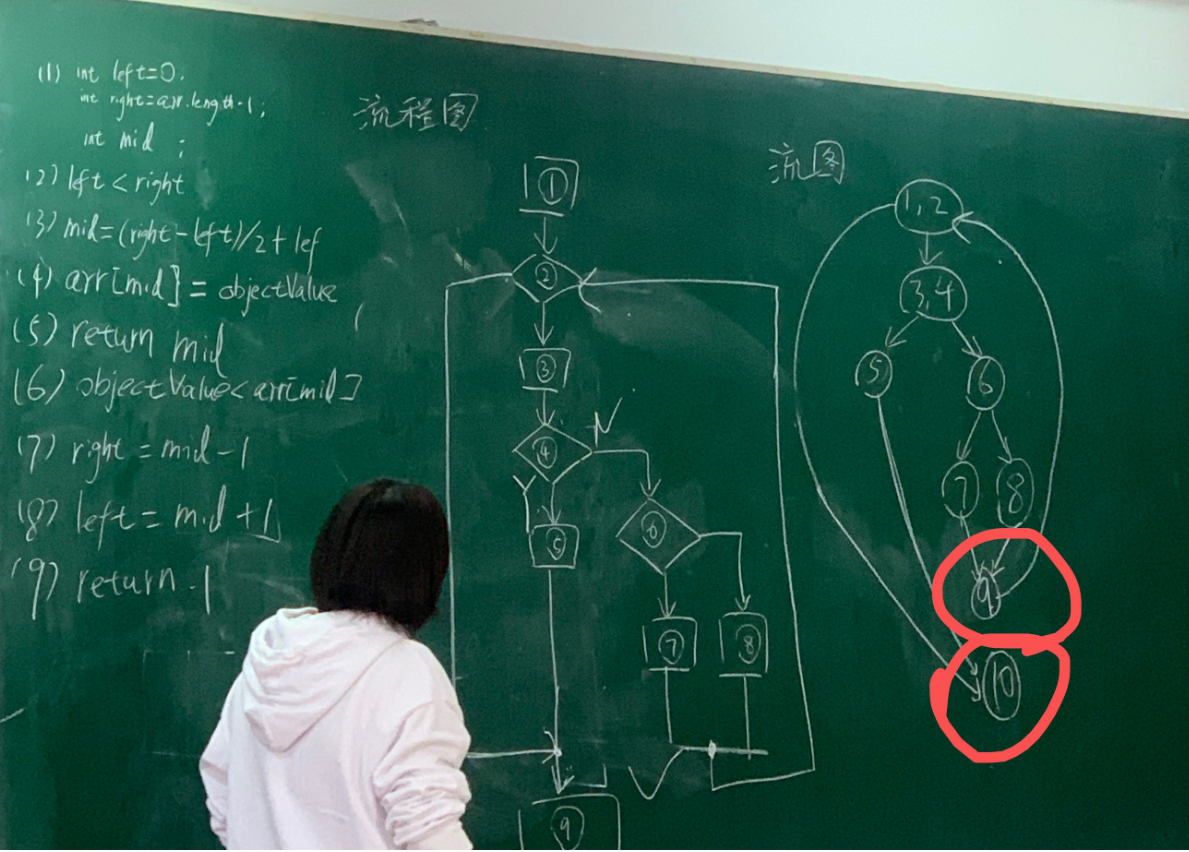 (1) int left=0.
int right=arr.length-1;
int mid ;
(2) left < right
(3) mid=(right-left)/2+lef
(4) arr[mid]=objectValue
(5) return mid
(6) objectValue<arr[mid]
(7) right = mid-1
(8) left = mid+1
(9) return -1
流程图
①
②
③
④
N
Y
⑤
⑥
⑦
⑧
⑨
流图
1,2
3,4
5
6
7
8
9
10